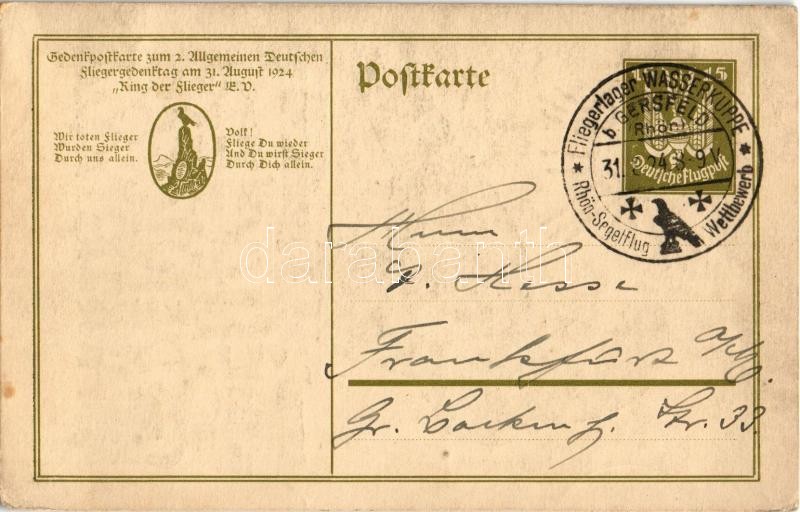 Gedenkpostkarte zum 2. Allgemeinen Deutschen
Fliegergedenktag am 31. August 1924
„Ring der Flieger“ E. V.
Wir toten Flieger
Wurden Sieger
Durch uns allein.
Volk!
Fliege Du wieder
Und Du wirst Sieger
Durch Dich allein.
Postkarte
15
Deutsche flugpost
* Fliegerlager WASSERKUPPE *
b GERSFELD
Rhön
31. 24 8-9V
Rhön-Segelflug Wettbewerb
Herrn
Hesse
Frankfurt a/M.
Str. 33.
darabanth